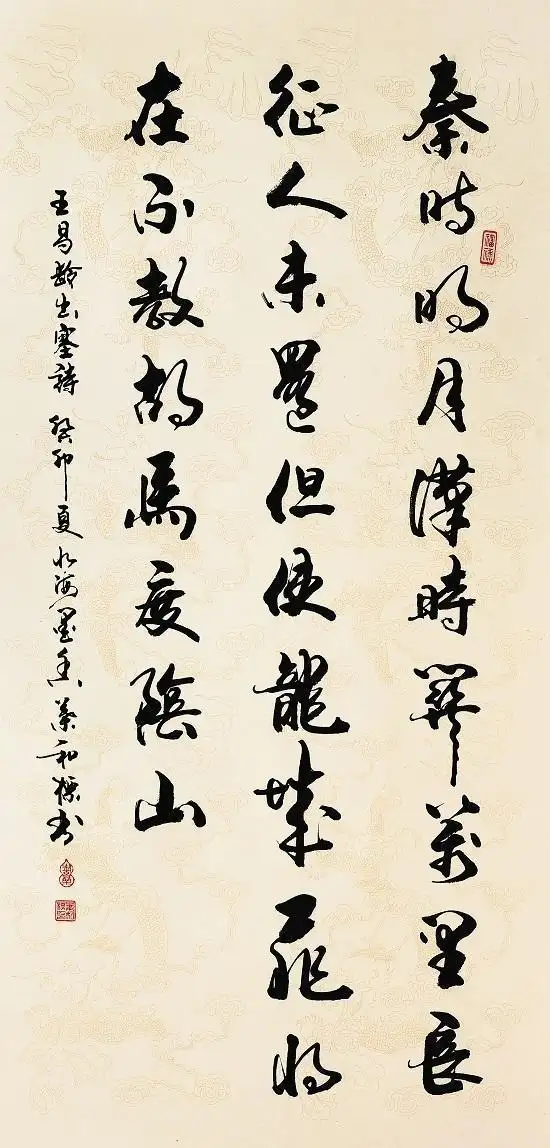 秦時明月漢時關萬里長
征人未還但使龍城飛將
在不教胡馬度陰山
王昌齡出塞詩 癸卯夏 墨香 和標書